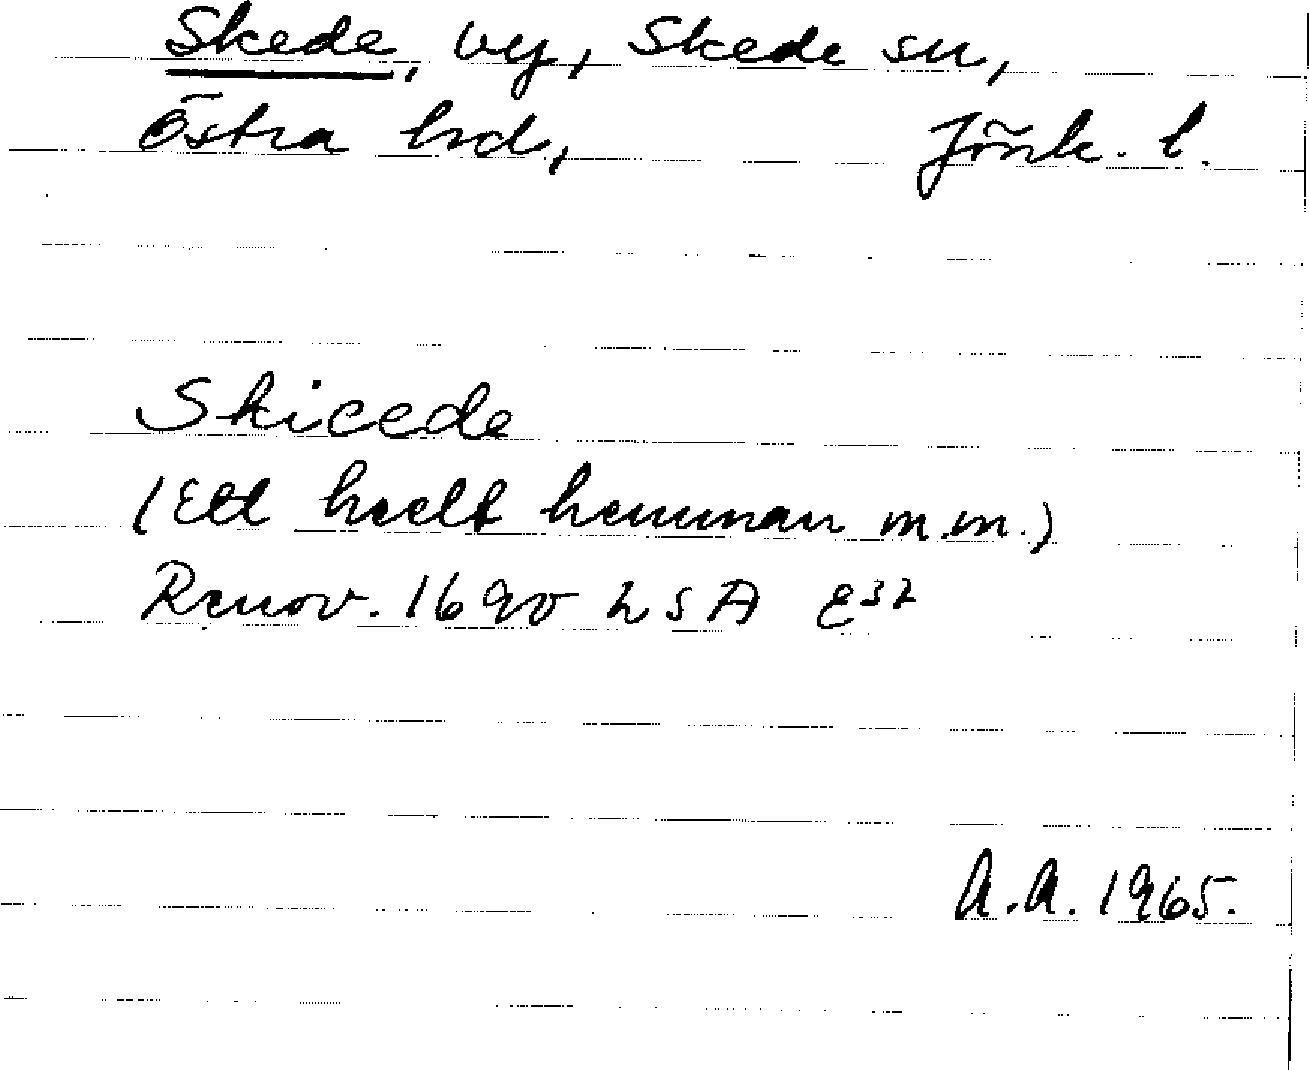 Skede, by, Skede sn,
Östra hd, Jönk. l.
Skicede
(Ett heelt hemman m.m.)
Renov. 1690 LSA E32
A.A. 1965.